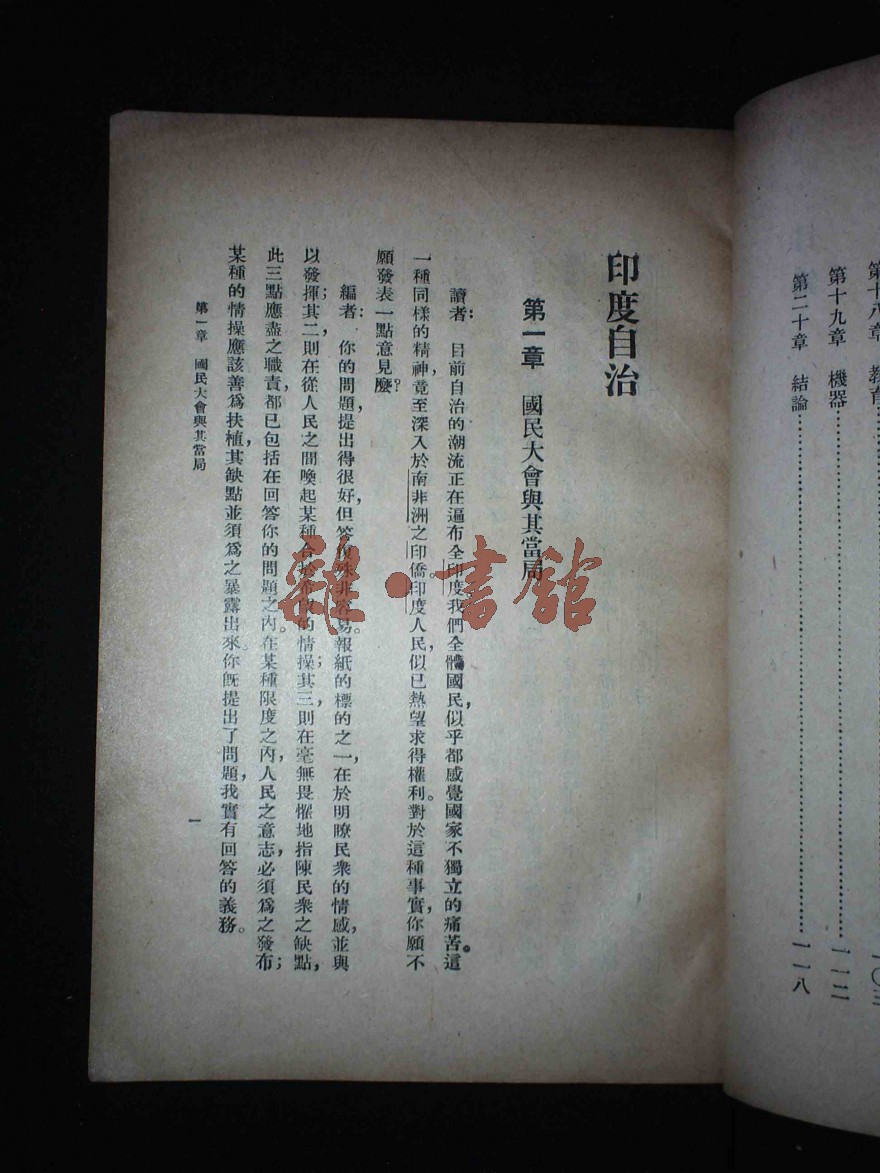 第十八章 教育
第十九章 機器……一一二
第二十章 結論……一一八
印度自治
第一章 國民大會與其當局
讀者： 目前自治的潮流正在遍布全印度我們全體國民，似乎都感覺國家不獨立的痛苦。這
一種同樣的精神竟至深入於南非洲之印僑。印度人民，似已熱望求得權利。對於這種事實，你願不
願發表一點意見麼？
編者： 你的問題，提出得很好，但答復殊非容易。報紙的標的之一，在於明瞭民衆的情感，並與
以發揮；其二則在從人民之間喚起某種合於的情操；其三，則在毫無畏懼地指陳民衆之缺點，
此三點應盡之職責，都已包括在回答你的問題之內。在某種限度之內，人民之意志必須爲之發布；
某種的情操應該善爲扶植，其缺點並須爲之暴露出來。你旣提出了問題，我實有回答的義務。
第一章 國民大會與其當局
一
雜·書館